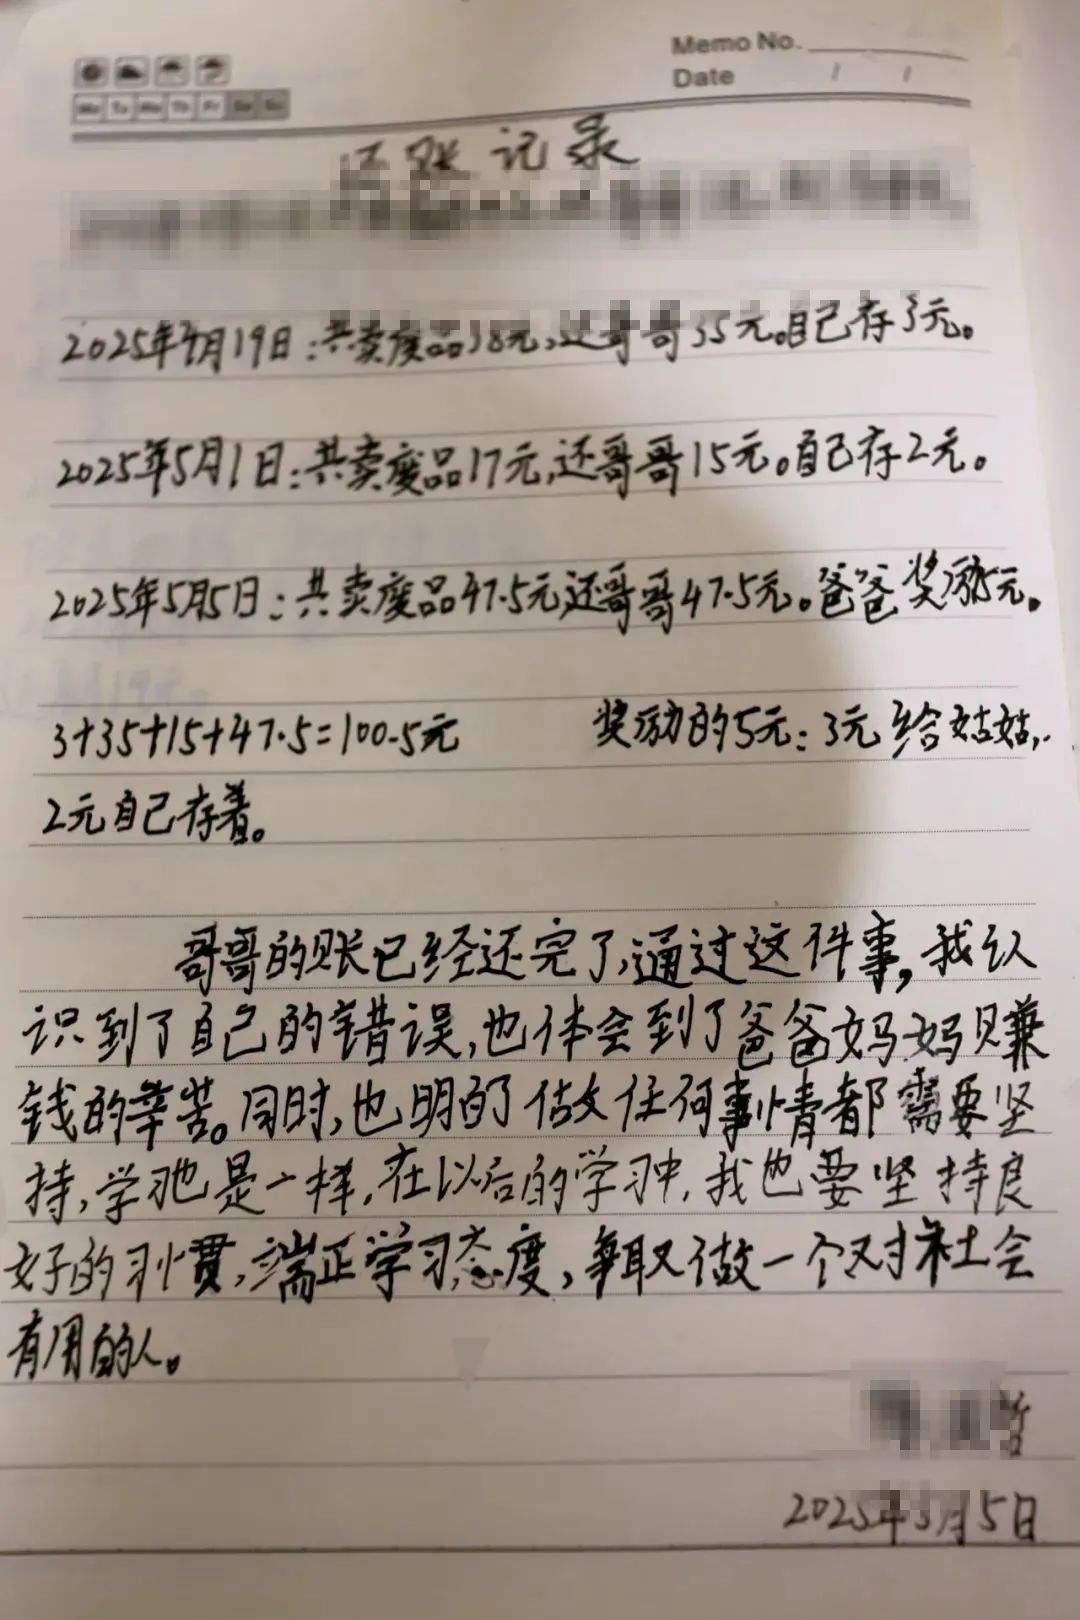 Memo No.
Date / /
Mo Tu We Th Fr Sa Su
还账记录
2025年4月19日:共卖废品38元,还哥哥35元。自己存3元。
2025年5月1日:共卖废品17元,还哥哥15元。自己存2元。
2025年5月5日:共卖废品47.5元还哥哥47.5元。爸爸奖励5元。
3+35+15+47.5=100.5元 奖励的5元:3元给姑姑,
2元自己存着。
哥哥的账已经还完了,通过这件事,我认
识到了自己的错误,也体会到了爸爸妈妈赚
钱的辛苦。同时,也明的了做任何事情都需要坚
持,学习也是一样,在以后的学习中,我也要坚持良
好的习惯,端正学习态度,争取做一个对社会
有用的人。
哲
2025年5月5日